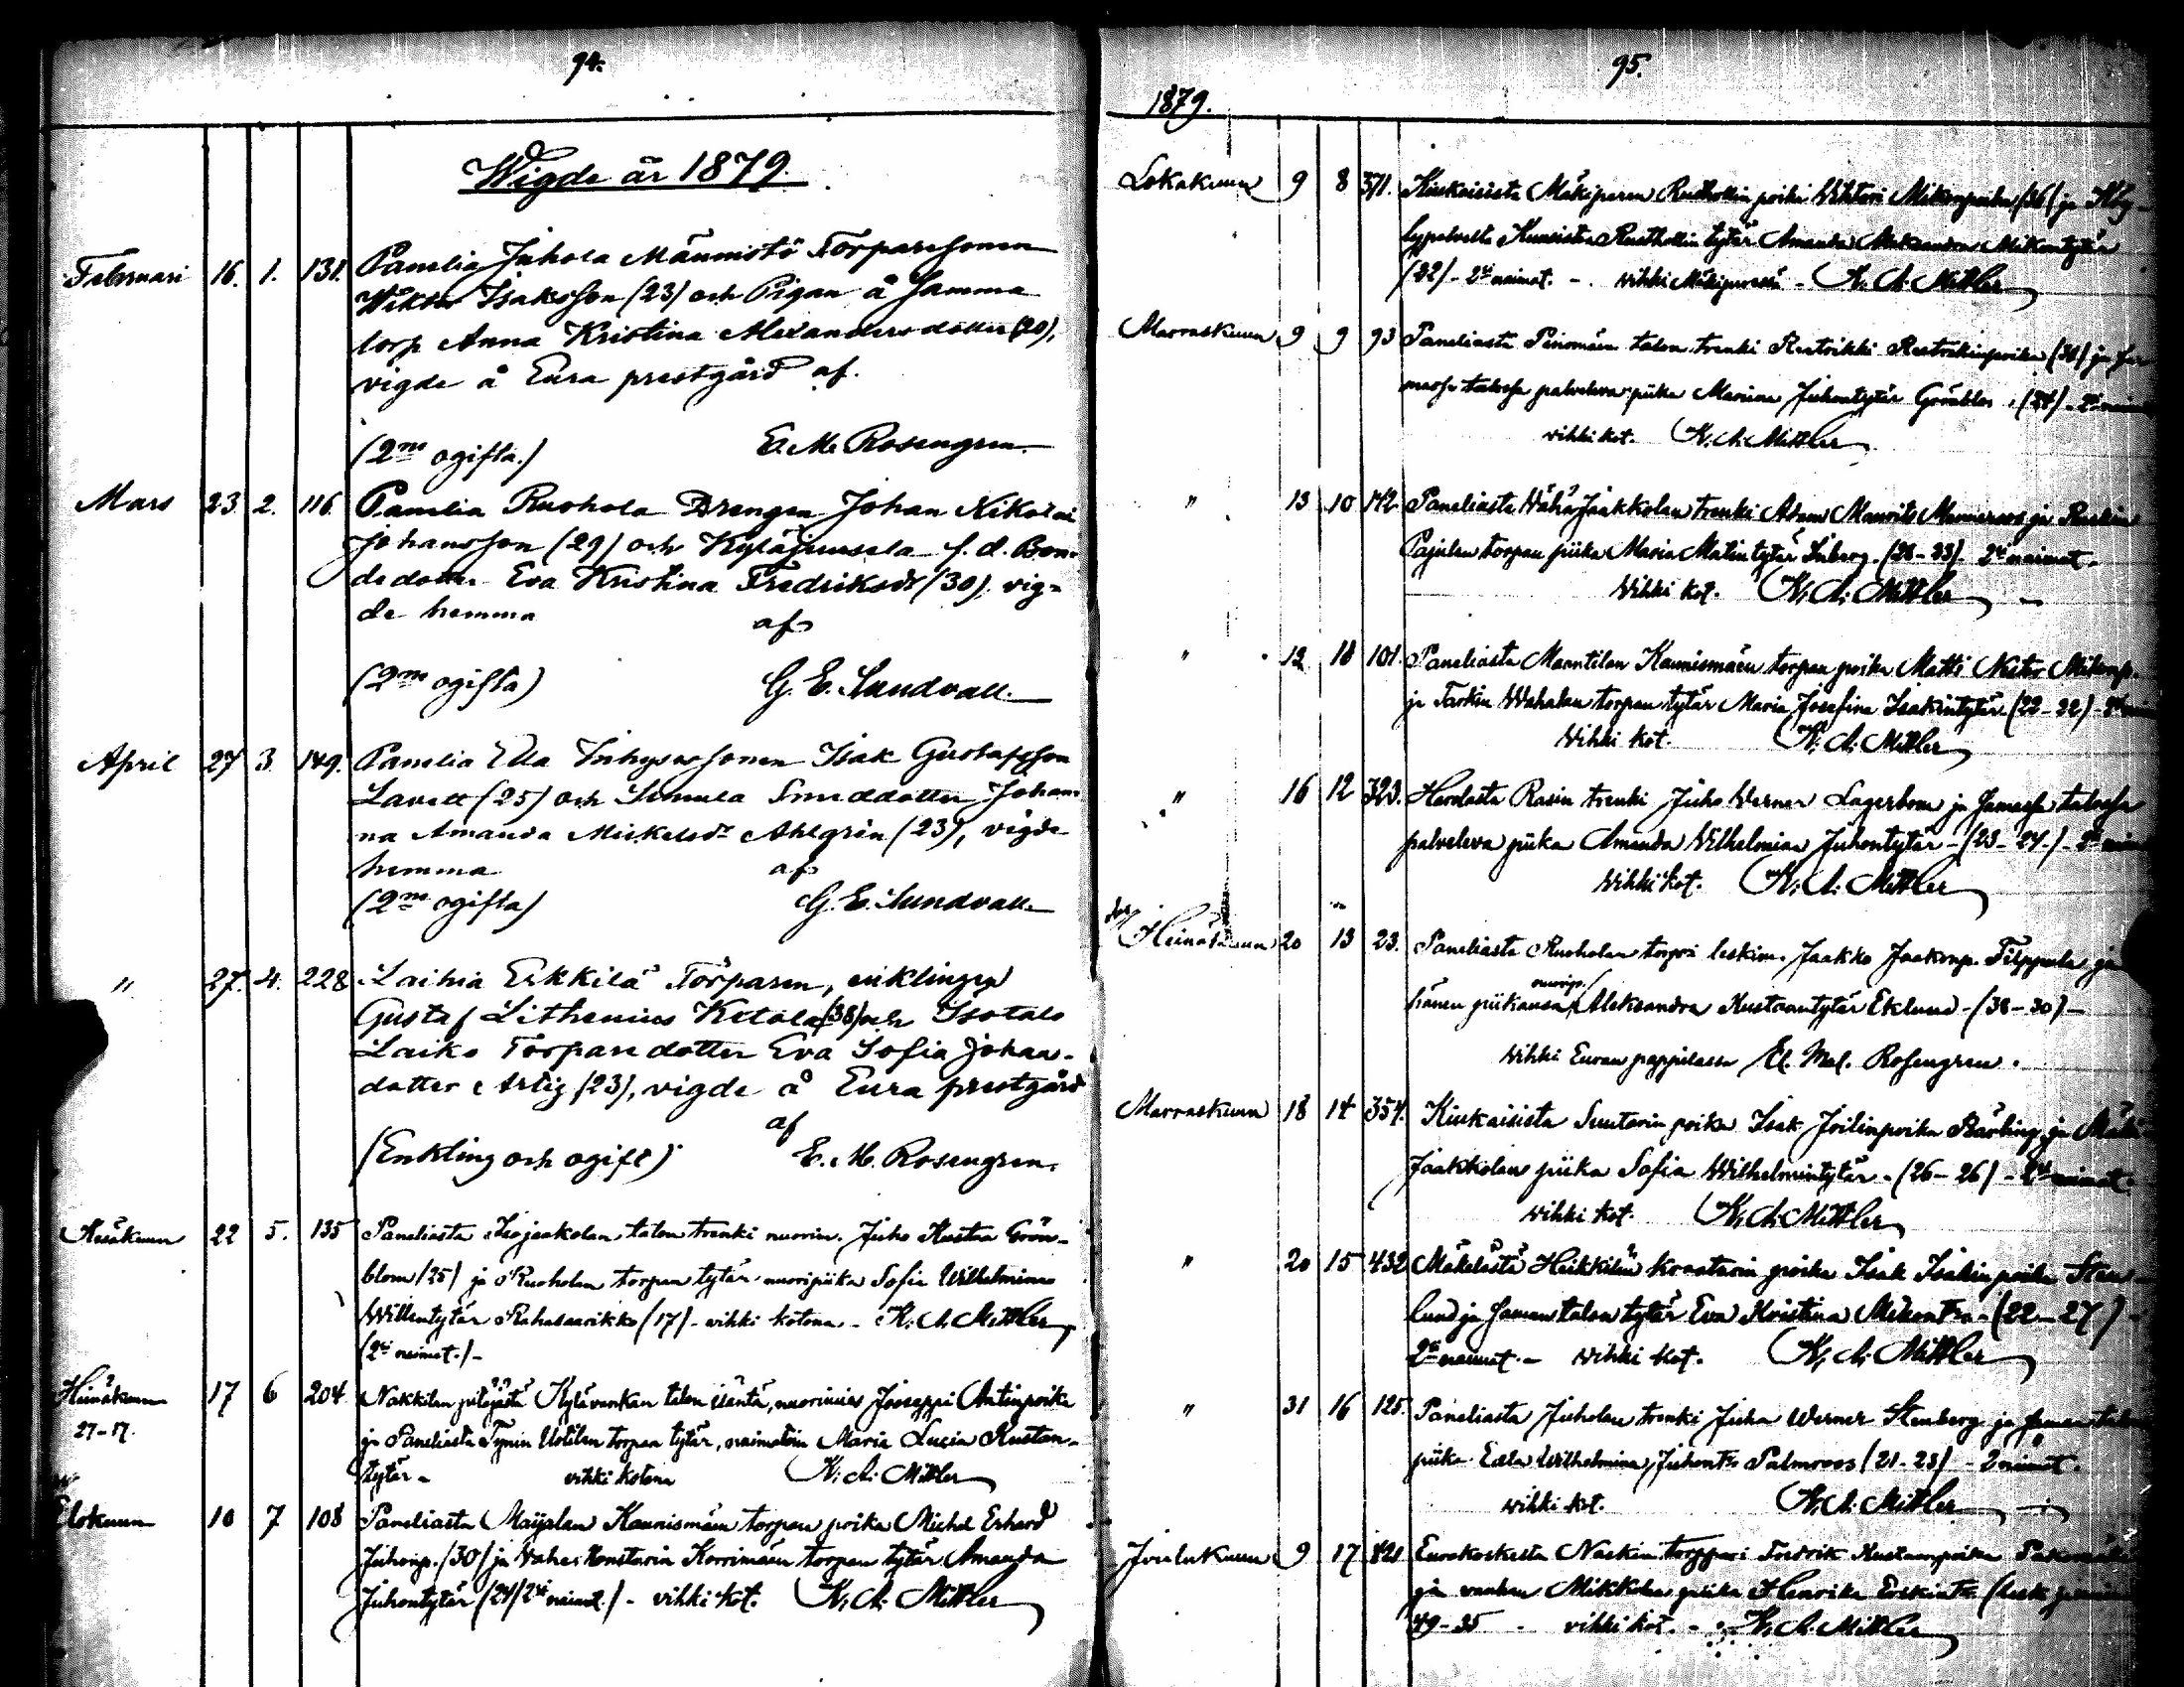 94.
Wigde år 1879.
Februari 16. 1. 131. Panelia Juhola Männistö Torparesonen
Wiktor Isaksson (23) och Pigan å samma
torp Anna Kristina Alexandersdotter (20),
vigde å Eura prestgård af.
(2ne ogifta.) E. M. Rosengren.
Mars 23. 2. 116 Panelia Ruohola Drengen Johan Nikolai
Johansson (29) och Kyläjunsela f. d. Bon-
dedotter Eva Kristina Fredriksdr (30), vig-
de hemma af
(2ne ogifta) G. E. Sundvall.
April 27 3. 149. Panelia Ella Inhysessonen Isak Gustafsson
Lavett (25) och Simula Smeddotter Johan-
na Amanda Mickelsdr Ahlgrén (23), vigde
hemma af
(2ne ogifta) G. E. Sundvall.
" 27. 4. 228 Laihia Erkkilä Torparen, enklingen
Gustaf Lithenius Ketola (38) och Isotalo
Laiko Torparedotter Eva Sofia Johans-
dotter Artig (23), vigde å Eura prestgård
af
(Enkling och ogift) E. M. Rosengren.
Kesäkuun 22 5. 135 Paneliasta Isojaakolan talon trenki nuorim. Juho Kustaa Grön-
blom (25) ja Ruoholan torpan tytär nuoripiika Sofia Wilhelmina
Willentytär Rahasaarikko (17) - vihki kotona - K. A. Mittler
(2si naimat.) -
Heinäkuun 17 6 204 Nakkilan pitäjästä Kylävankan talon isäntä, nuorimies Jooseppi Antinpoika
27-17. ja Paneliasta Tynin Uotilan torpan tytär, naimatoin Maria Lucia Kustan-
tytär - vihki kotona K. A. Mittler
Elokuun 10 7 108 Paneliasta Maijalan Kaunismäen torpan poika Michel Erhard
Juhonp. (30) ja Vahe Konstarin Korrimäen torpan tytär Amanda
Juhontytär (24/2si naimat.) - vihki kot. K. A. Mittler
95.
1879.
Lokakuun 9 8 371. Kiukaisista Mäkiperen Rusthollin poika Wihtori Mikonpoika (36) ja Köy-
lypolvelta Kuusistan Rusthollin tytär Amanda Aleksandra Mikontytär
(22) - 2si naimat. - vihki Mäkiperessä - K. A. Mittler
Marraskuun 9 9 93 Paneliasta Pinomäen talon trenki Kustvikki ja sa-
massa talossa palveleva piika Mariana Juhontytär Grönblom (24) - 2si
vihki kot. K. A. Mittler
" 13 10 142 Paneliasta Vähä Jaakkolan trenki Adam Maurits Manneroos ja
Pajulan torpan piika Maria Matintytär Inberg. (28-33). 2si naimat.
Vihki kot. K. A. Mittler
" 12 18 101. Paneliasta Manntilan Kaunismäen torpan poika Matti Nestor Mikonp.
ja Tarkin Wahalan torpan tytär Maria Josefina Isakintytär (22-22)
Vihki kot. K. A. Mittler
" 16 12 323. Harolasta Rasin trenki Juho Werner Lagerbom ja samassa talossa
palveleva piika Amanda Wilhelmina Juhontytär - (23-24-)
Vihki kot. K. A. Mittler
Heinäkuun 20 13 23. Paneliasta Ruoholan torpari leskim. Jaakko Jaakonp. Filppula ja
hänen piikansa nuorip. Aleksandra Kustaantytär Eklund - (38-30) -
Vihki Euran pappilassa El. Mel. Rosengren.
Marraskuun 18 14 354. Kiukaisista Suutarin poika Isak Joilinpoika Bärling ja
Jaakkolan piika Sofia Wilhelmintytär - (26-26) - 2si naimat.
vihki kot. K. A. Mittler
" 20 15 432 Mäkelästä Heikkilän konstarin poika Isak Isakinpoika Sten-
lund ja saman talon tytär Eva Kristina Mikontr. - (22-27) -
2si naimat. - vihki kot. K. A. Mittler
" 31 16 125. Paneliasta Juholan trenki Juha Werner Stenberg ja saman talon
piika Edla Wilhelmina Juhontr. Palmroos (21-23) - 2 naimat.
vihki kot. K. A. Mittler
Joulukuun 9 17 421 Eurakoskelta Naskin torppari Fredrik Kustaanpoika
ja vanhan Mikkolan piika Henrika Erkintr. (lesk.
49-35 - vihki kot. - K. A. Mittler